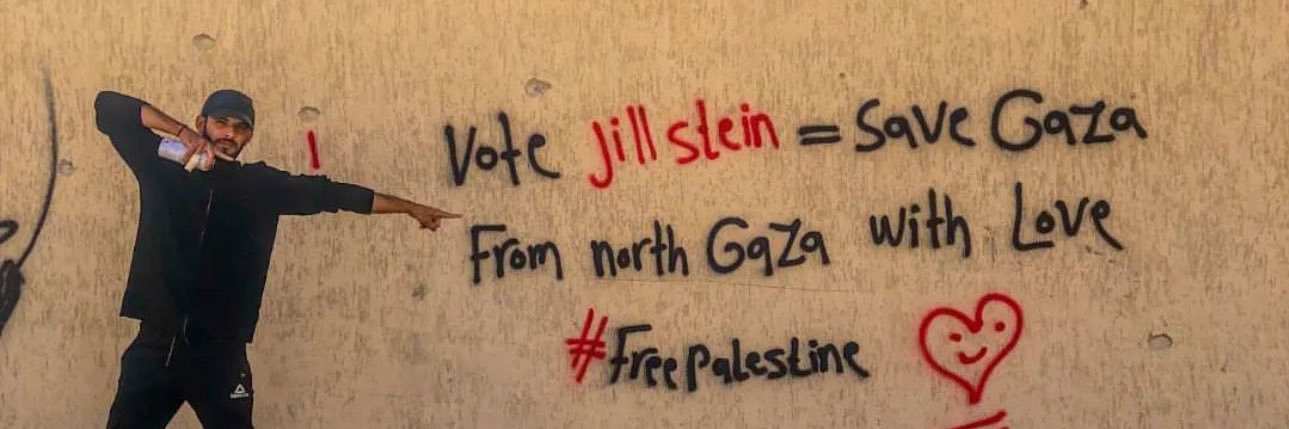 Vote Jill stein = Save Gaza
From north Gaza with Love
#Freepalestine